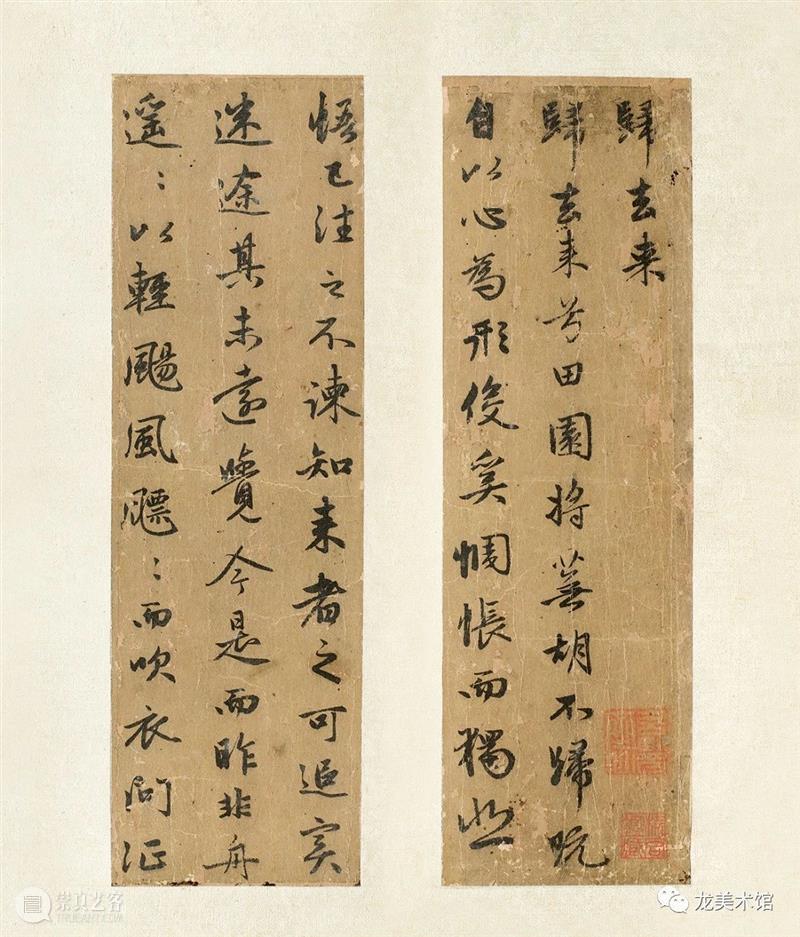 歸去来
歸去来兮田園将蕪胡不歸既
自以心為形役奚惆悵而獨悲
悟已往之不諫知来者之可追寔
迷途其未遠覺今是而昨非舟
遥〻以輕颺風飄〻而吹衣問征
崇真艺客
龙美术馆